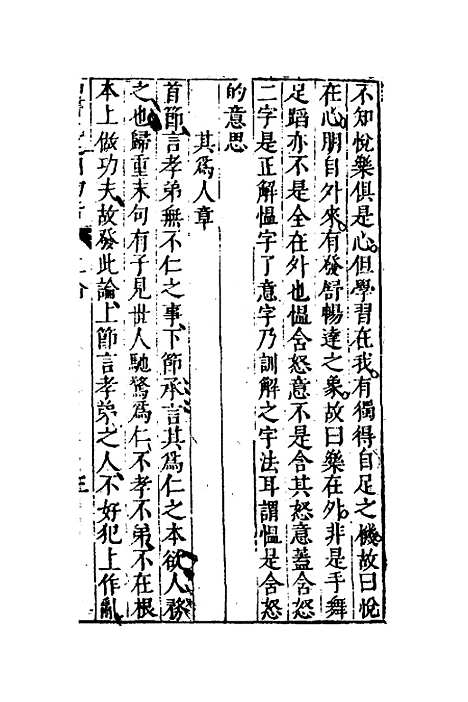 不知悅樂俱是心但學習在我有獨得自足之機故曰悅
在心朋自外來有發舒暢達之象故曰樂在外非是手舞
足蹈亦不是全在外也慍含怒意不是含其怒意蓋含怒
二字是正解慍字了意字乃訓解之字法耳謂慍是含怒
的意思
其爲人章
首節言孝弟無不仁之事下節承言其爲仁之本欲人務
之也歸重末句有子見世人馳騖爲仁不孝不弟不在根
本上做功夫故發此論上節言孝弟之人不好犯上作亂